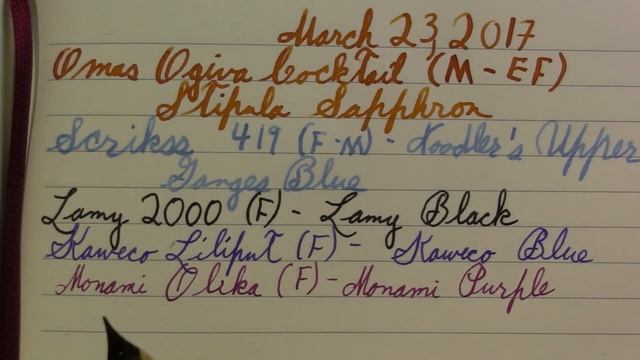 March 23, 2017
Omas Ogiva Cocktail (M-EF)
Stipula Sapphron
Scrikss 419 (F-M) - Noodler's Upper
Ganges Blue
Lamy 2000 (F) - Lamy Black
Kaweco Liliput (F) - Kaweco Blue
Monami Olika (F) - Monami Purple